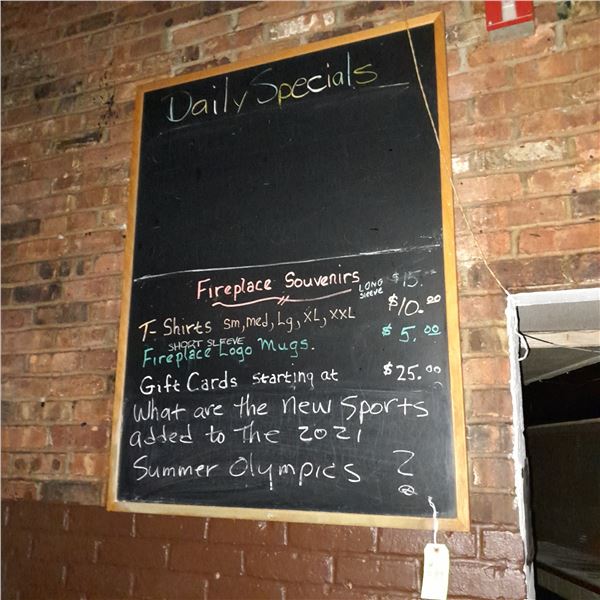 Daily Specials
Fireplace Souvenirs
LONG SLEEVE $15.00
T-Shirts sm, med, Lg, XL, XXL $10.00
SHORT SLEEVE
Fireplace Logo Mugs. $5.00
Gift Cards starting at $25.00
What are the new Sports
added to The 2021
Summer Olympics ?